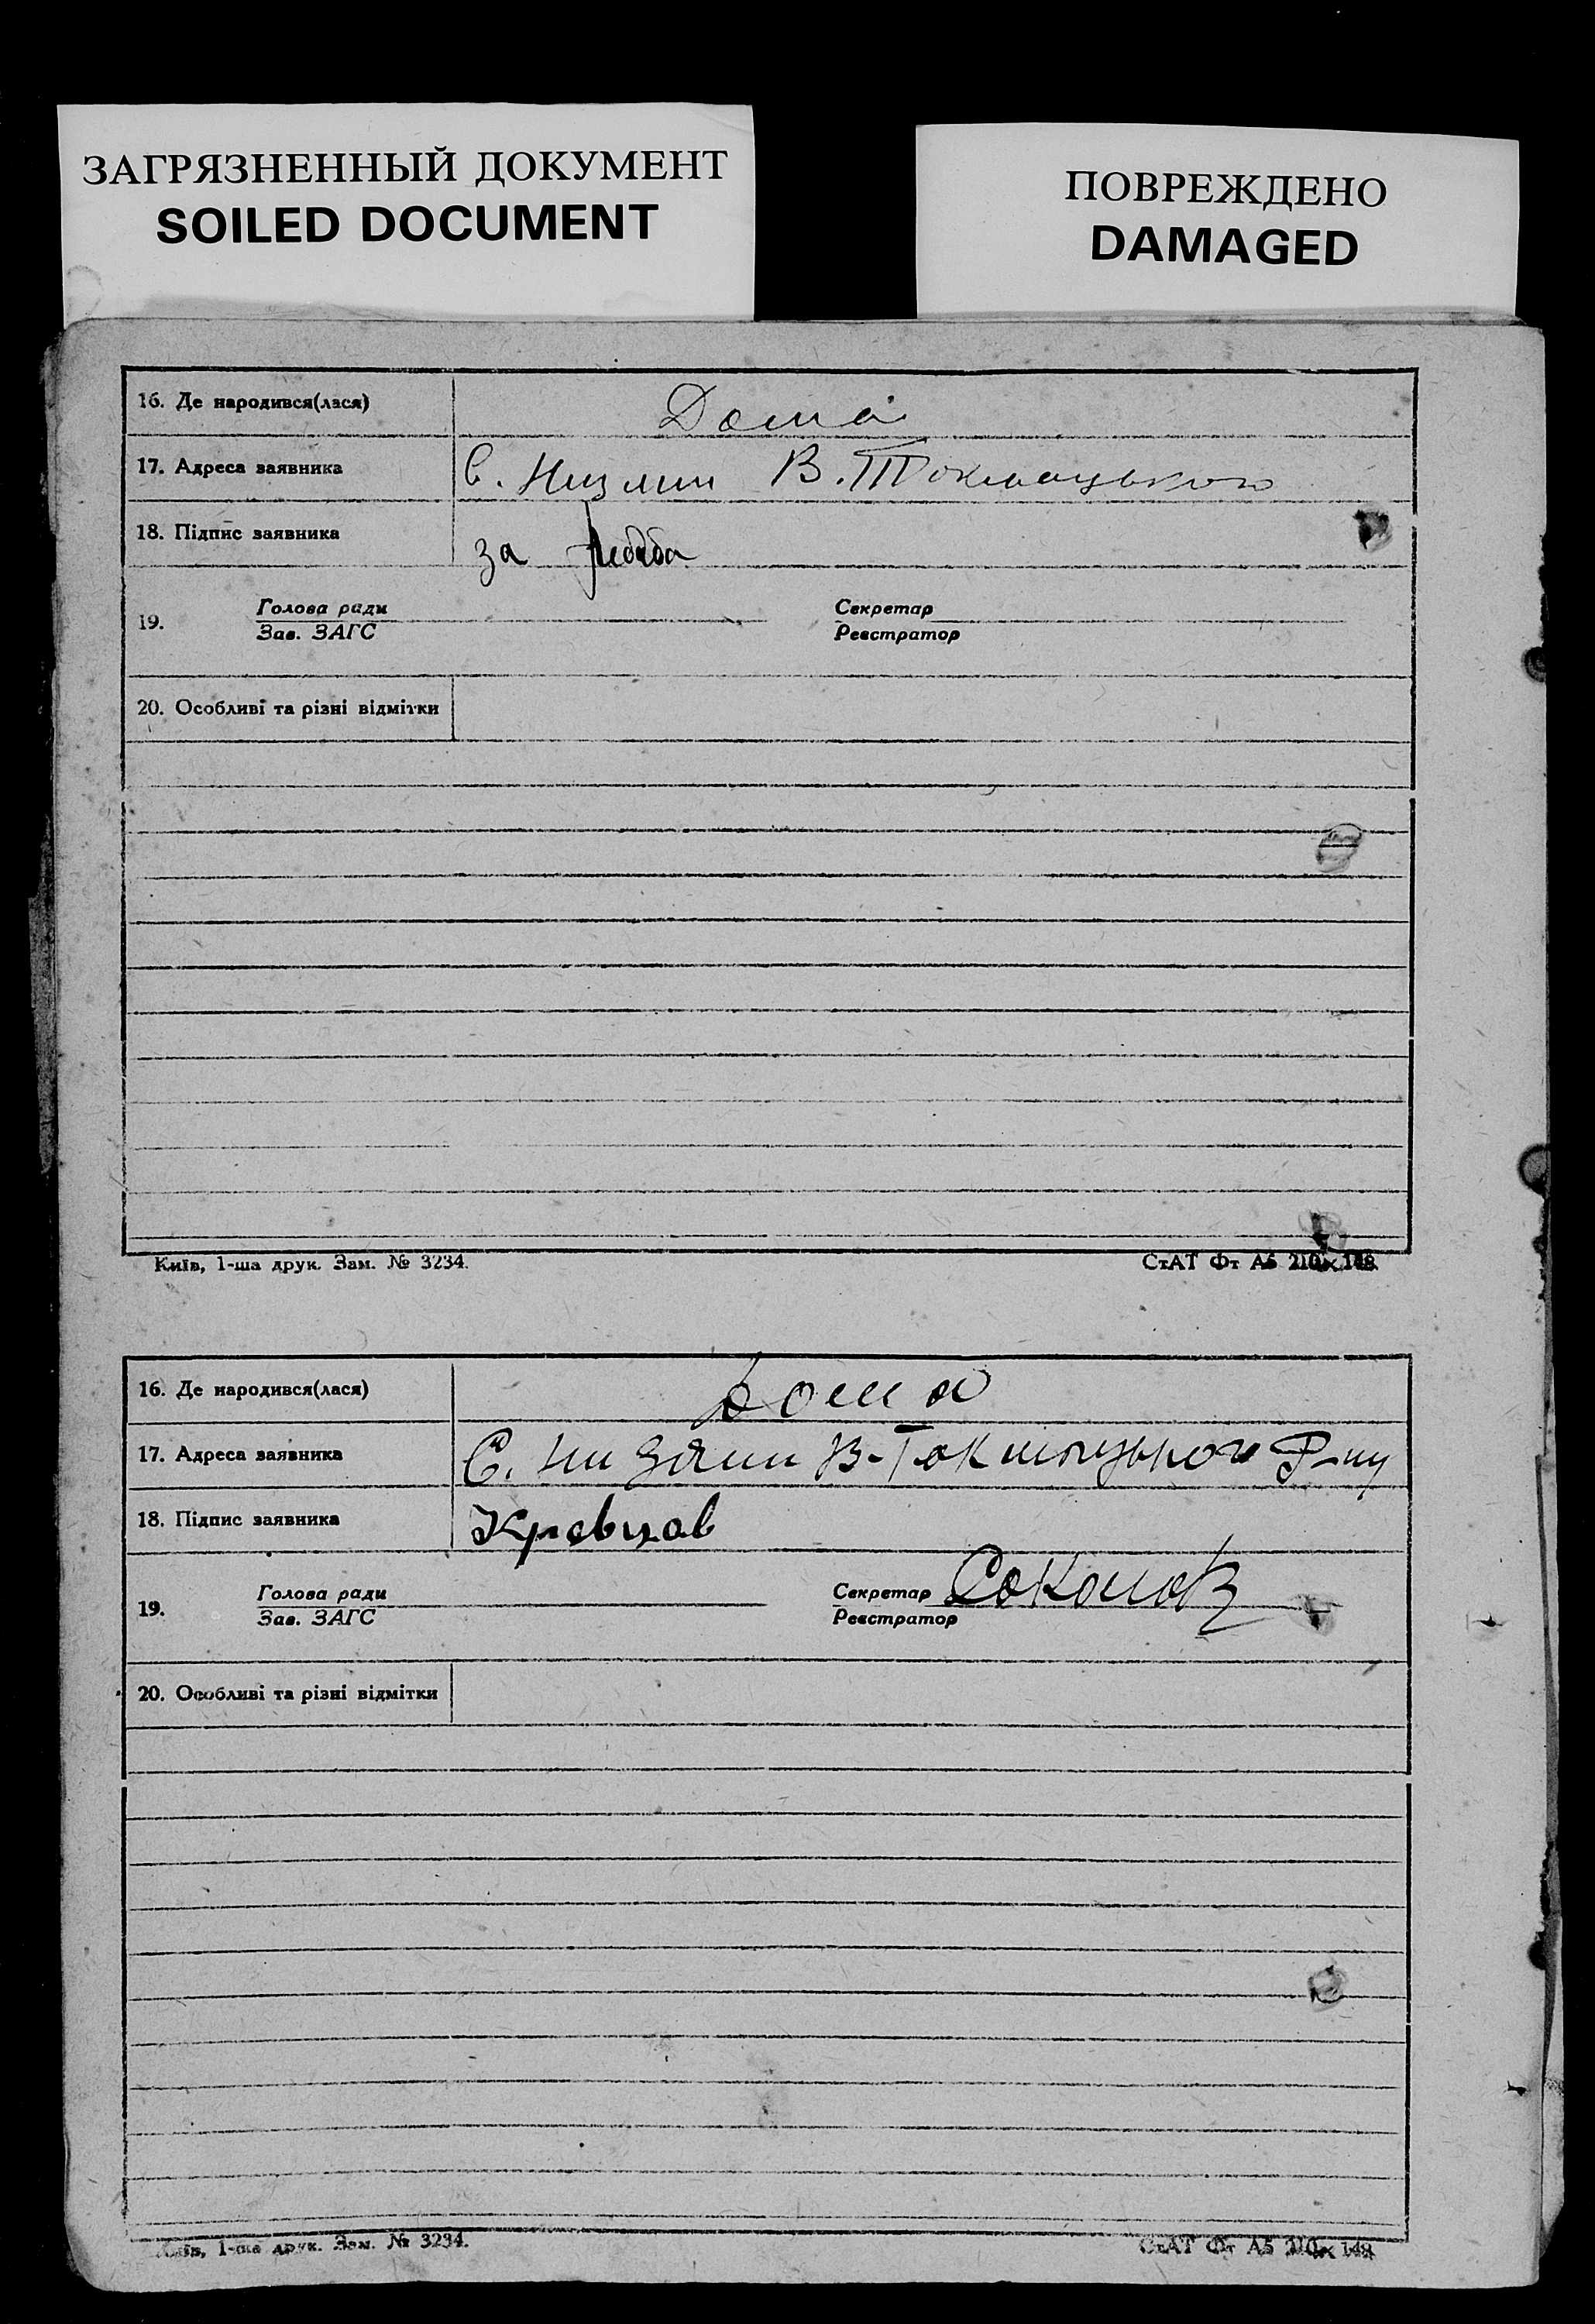 ЗАГРЯЗНЕННЫЙ ДОКУМЕНТ
SOILED DOCUMENT
ПОВРЕЖДЕНО
DAMAGED
16. Де народився(лася) Дома
17. Адреса заявника С. Низяни В. Токмацького
18. Підпис заявника за
19. Голова ради Секретар
Зав. ЗАГС Реєстратор
20. Особливі та різні відмітки
Київ, 1-ша друк. Зам. № 3234. СтАТ Фт А5 210×148
16. Де народився(лася) Дома
17. Адреса заявника С. Низяни В-Токмацького Р-ну
18. Підпис заявника Кравцов
19. Голова ради Секретар Соколов
Зав. ЗАГС Реєстратор
20. Особливі та різні відмітки
Київ, 1-ша друк. Зам. № 3234. СтАТ Фт А5 210×148